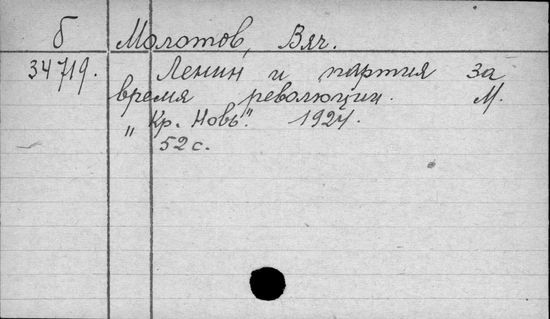 б Молотов, Вяч.
34719. Ленин и партия за
время революции. М.
„Кр. Новь". 1924.
52 с.